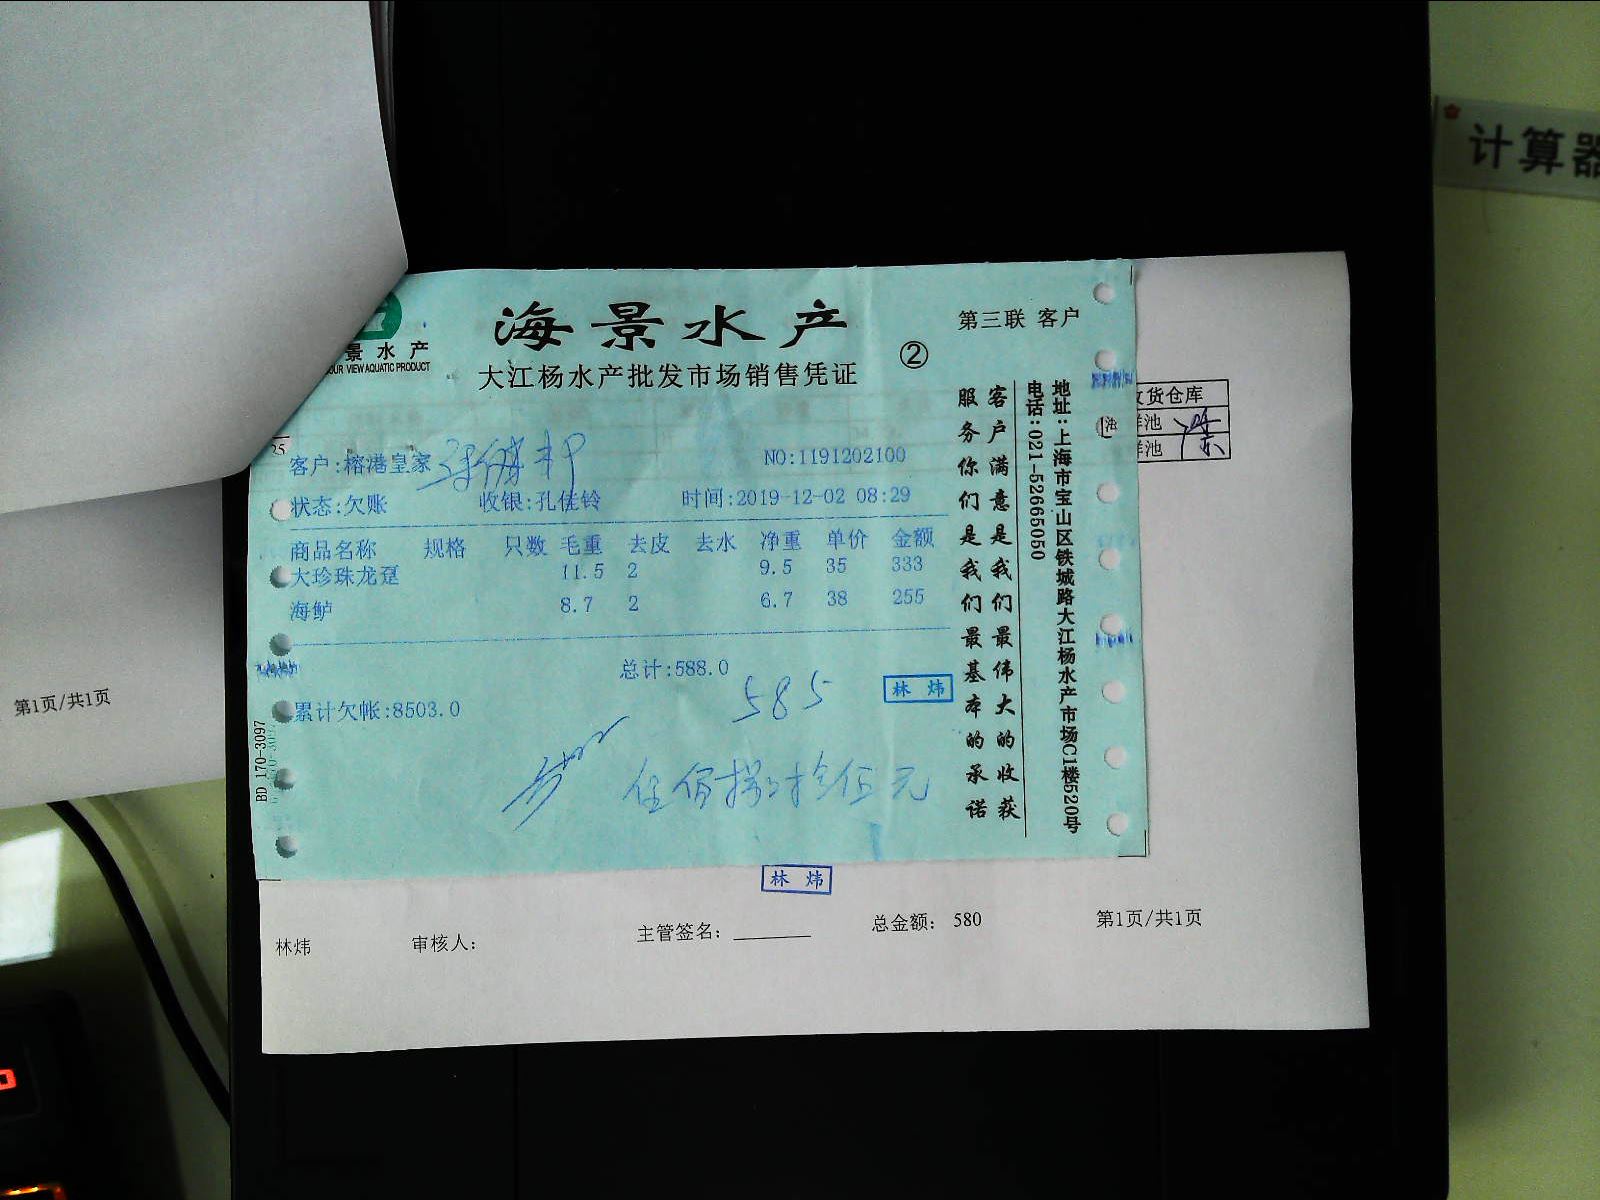 计算器
海景水产
第三联 客户
②
景水产
OUR VIEW AQUATIC PRODUCT
大江杨水产批发市场销售凭证
客户:榕港皇家
NO:1191202100
状态:欠账 收银:孔佳铃 时间:2019-12-02 08:29
商品名称 规格 只数 毛重 去皮 去水 净重 单价 金额
大珍珠龙趸 11.5 2 9.5 35 333
海鲈 8.7 2 6.7 38 255
总计:588.0
585
林炜
累计欠帐:8503.0
伍佰捌拾伍元
客户满意是我们最伟大的收获
服务你们是我们最基本的承诺
地址:上海市宝山区铁城路大江杨水产市场C1楼520号
电话:021-52665050
BD 170-3097
货仓库
鲜池
鲜池
林炜
林炜 审核人: 主管签名: 总金额: 580 第1页/共1页
第1页/共1页